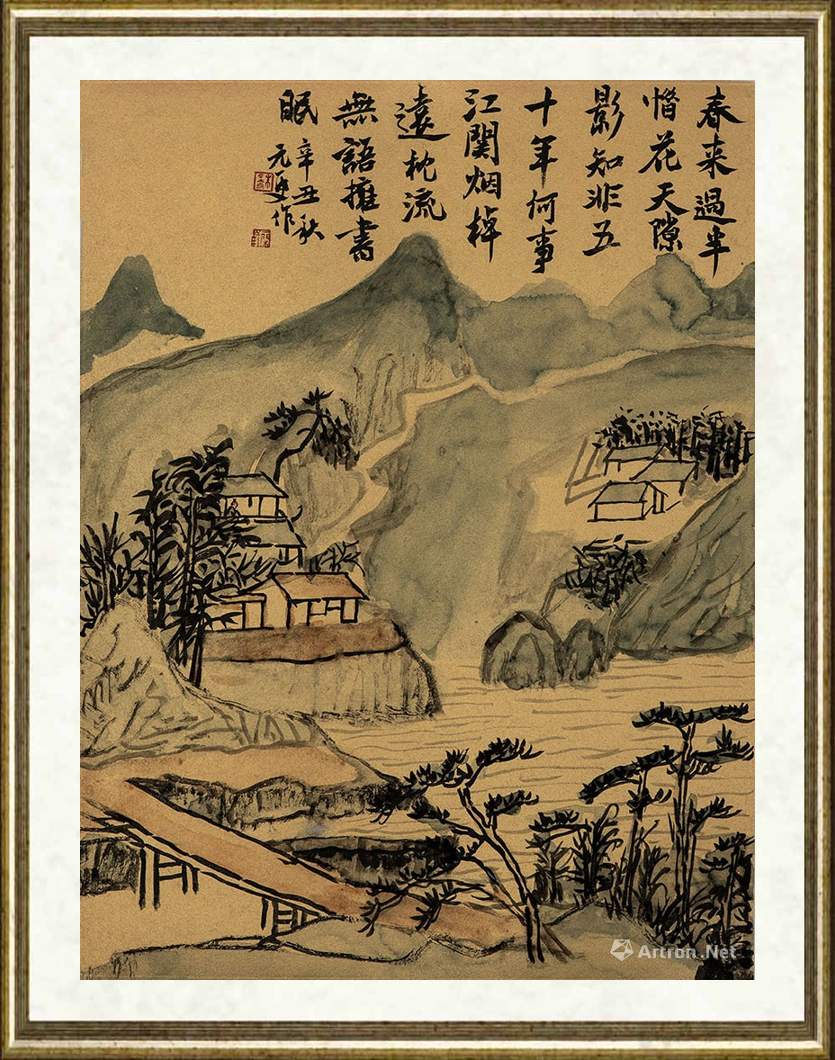 春来過半
惜花天隙
影知非五
十年何事
江関烟棹
遠枕流
無語擁書
眠 辛丑秋
元作
Artron.Net